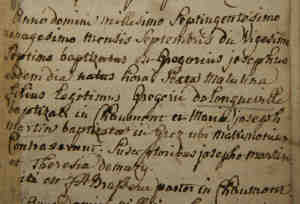 Anno domini millesimo Septingentesimo
nonagesimo mensis Septembris die vigesima
Septima baptizatus est Gregorius josephus
eadem die natus hora Sexta Matutina
filius legitimus Gregorii de longueville
baptizati in Chaumont et Maria joseph
martin baptizatae in
Contraxerunt. Susceptoribus josepho martin
et Theresia
ita est pastor in Chaumont